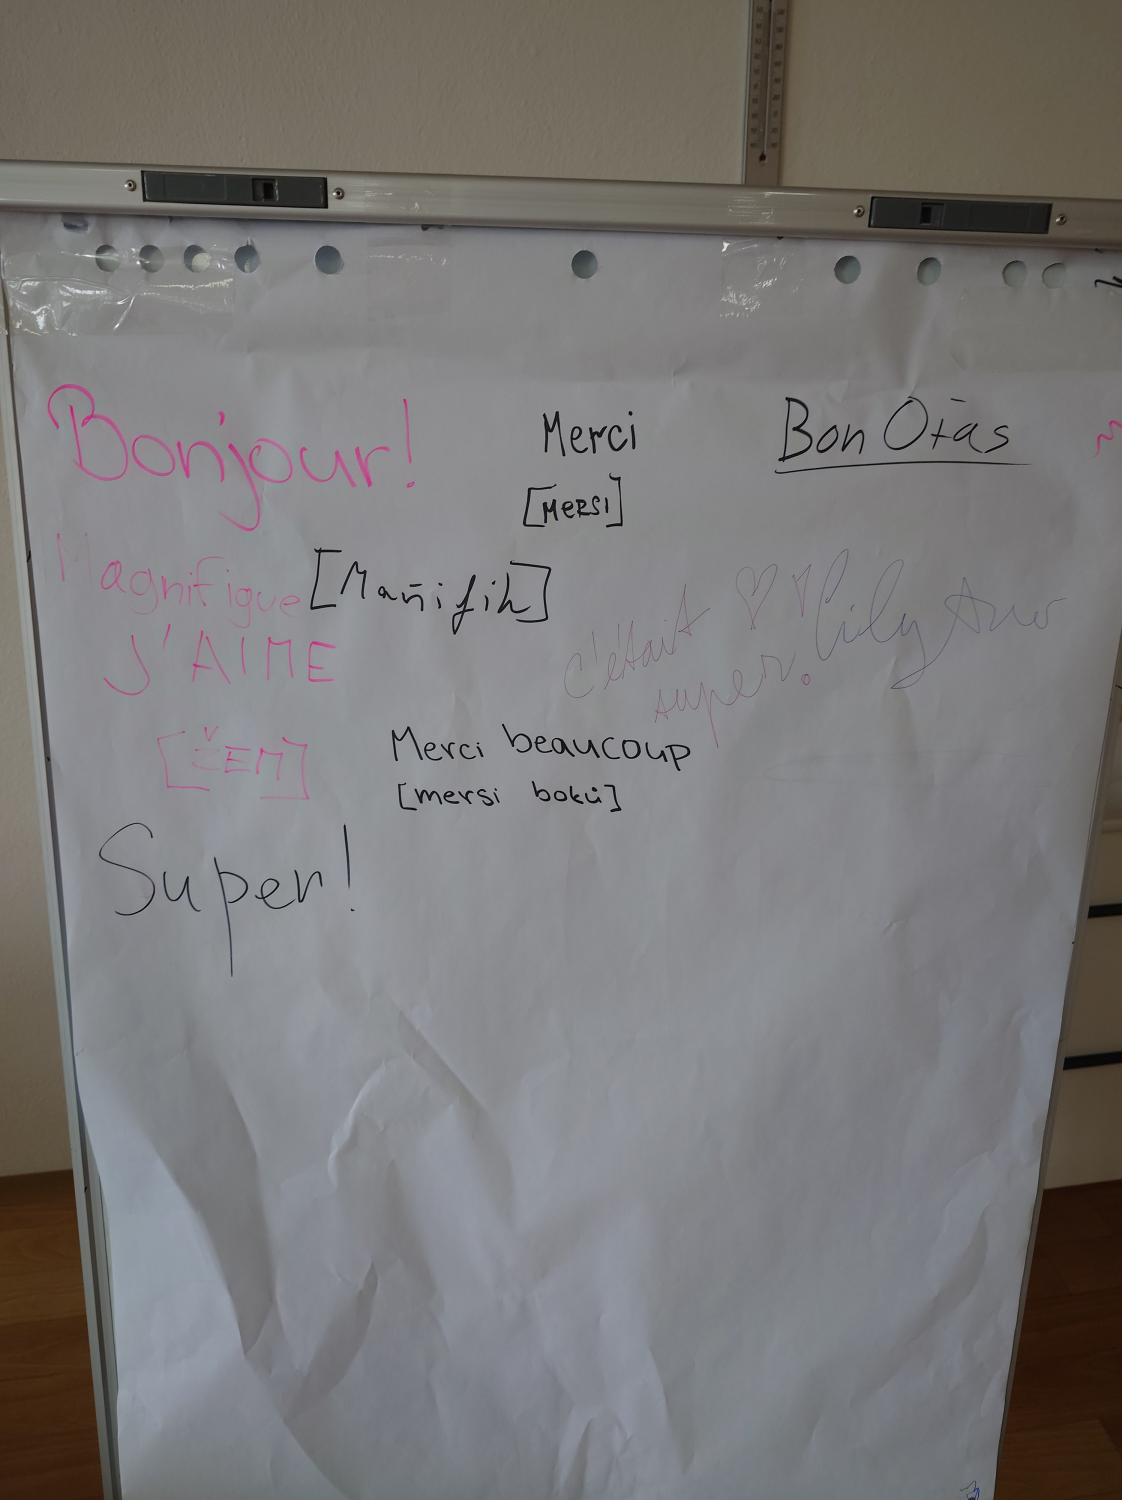 Bonjour!
Merci
[MERSI]
Bon Otas
Magnifique [Mañifik]
J'AIME
[ČEM]
c'était
super.
Lily
Merci beaucoup
[mersi bokü]
Super!